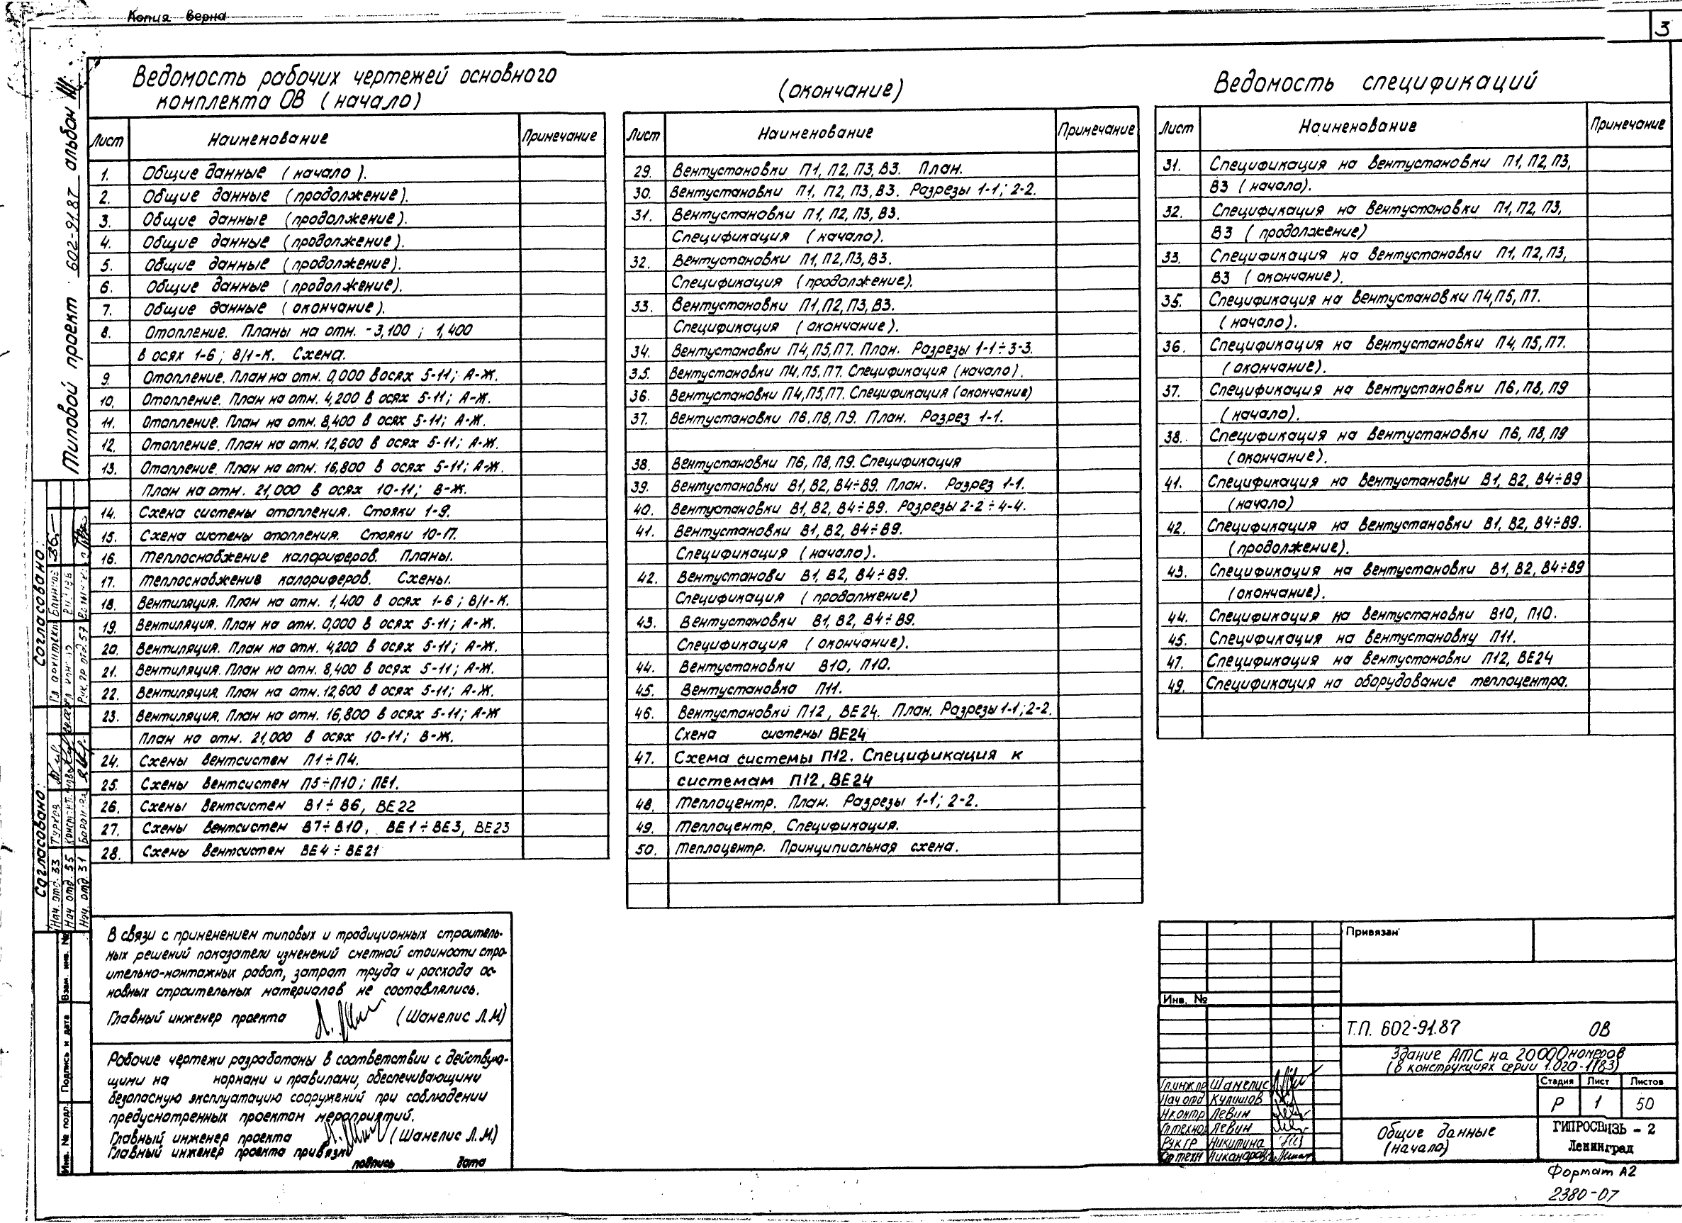 Копия верна
3
Типовой проект 602-91.87 альбом III
Ведомость рабочих чертежей основного
комплекта ОВ (начало)
Лист Наименование Примечание
1. Общие данные (начало).
2. Общие данные (продолжение).
3. Общие данные (продолжение).
4. Общие данные (продолжение).
5. Общие данные (продолжение).
6. Общие данные (продолжение).
7. Общие данные (окончание).
8. Отопление. Планы на отм. -3,100 ; 1,400
в осях 1-6 ; В/1-К. Схема.
9. Отопление. План на отм. 0,000 в осях 5-11; А-Ж.
10. Отопление. План на отм. 4,200 в осях 5-11; А-Ж.
11. Отопление. План на отм. 8,400 в осях 5-11; А-Ж.
12. Отопление. План на отм. 12,600 в осях 5-11; А-Ж.
13. Отопление. План на отм. 16,800 в осях 5-11; А-Ж.
План на отм. 21,000 в осях 10-11; В-Ж.
14. Схема системы отопления. Стояки 1-9.
15. Схема системы отопления. Стояки 10-П.
16. Теплоснабжение калориферов. Планы.
17. Теплоснабжение калориферов. Схемы.
18. Вентиляция. План на отм. 1,400 в осях 1-6 ; В/1-К.
19. Вентиляция. План на отм. 0,000 в осях 5-11; А-Ж.
20. Вентиляция. План на отм. 4,200 в осях 5-11; А-Ж.
21. Вентиляция. План на отм. 8,400 в осях 5-11; А-Ж.
22. Вентиляция. План на отм. 12,600 в осях 5-11; А-Ж.
23. Вентиляция. План на отм. 16,800 в осях 5-11; А-Ж
План на отм. 21,000 в осях 10-11; В-Ж.
24. Схемы вентсистем П1÷П4.
25. Схемы вентсистем П5÷П10 ; ПЕ1.
26. Схемы вентсистем В1÷В6, ВЕ22
27. Схемы вентсистем В7÷В10, ВЕ1÷ВЕ3, ВЕ23
28. Схемы вентсистем ВЕ4÷ВЕ21
(окончание)
Лист Наименование Примечание
29. Вентустановки П1, П2, П3, В3. План.
30. Вентустановки П1, П2, П3, В3. Разрезы 1-1; 2-2.
31. Вентустановки П1, П2, П3, В3.
Спецификация (начало).
32. Вентустановки П1, П2, П3, В3.
Спецификация (продолжение).
33. Вентустановки П1, П2, П3, В3.
Спецификация (окончание).
34. Вентустановки П4, П5, П7. План. Разрезы 1-1÷3-3.
35. Вентустановки П4, П5, П7. Спецификация (начало).
36. Вентустановки П4, П5, П7. Спецификация (окончание)
37. Вентустановки П6, П8, П9. План. Разрез 1-1.
38. Вентустановки П6, П8, П9. Спецификация
39. Вентустановки В1, В2, В4÷В9. План. Разрез 1-1.
40. Вентустановки В1, В2, В4÷В9. Разрезы 2-2÷4-4.
41. Вентустановки В1, В2, В4÷В9.
Спецификация (начало).
42. Вентустанови В1, В2, В4÷В9.
Спецификация (продолжение)
43. Вентустановки В1, В2, В4÷В9.
Спецификация (окончание).
44. Вентустановки В10, П10.
45. Вентустановка П11.
46. Вентустановки П12, ВЕ24. План. Разрезы 1-1; 2-2.
Схема системы ВЕ24
47. Схема системы П12. Спецификация к
системам П12, ВЕ24
48. Теплоцентр. План. Разрезы 1-1; 2-2.
49. Теплоцентр. Спецификация.
50. Теплоцентр. Принципиальная схема.
Ведомость спецификаций
Лист Наименование Примечание
31. Спецификация на вентустановки П1, П2, П3,
В3 (начало).
32. Спецификация на вентустановки П1, П2, П3,
В3 (продолжение)
33. Спецификация на вентустановки П1, П2, П3,
В3 (окончание).
35. Спецификация на вентустановки П4, П5, П7.
(начало).
36. Спецификация на вентустановки П4, П5, П7.
(окончание).
37. Спецификация на вентустановки П6, П8, П9
(начало).
38. Спецификация на вентустановки П6, П8, П9
(окончание).
41. Спецификация на вентустановки В1, В2, В4÷В9
(начало)
42. Спецификация на вентустановки В1, В2, В4÷В9.
(продолжение).
43. Спецификация на вентустановки В1, В2, В4÷В9
(окончание).
44. Спецификация на вентустановки В10, П10.
45. Спецификация на вентустановку П11.
47. Спецификация на вентустановки П12, ВЕ24
49. Спецификация на оборудование теплоцентра.
Согласовано:
Согласовано:
Нач. отд. 33
Нач. отд. 55
Нач. отд. 31
Взам. инв. №
Подпись и дата
Инв. № подл.
В связи с применением типовых и традиционных строитель-
ных решений показатели изменений сметной стоимости стро-
ительно-монтажных работ, затрат труда и расхода ос-
новных строительных материалов не составлялись.
Главный инженер проекта (Шамелис Л.М)
Рабочие чертежи разработаны в соответствии с действую-
щими на нормами и правилами, обеспечивающими
безопасную эксплуатацию сооружений при соблюдении
предусмотренных проектом мероприятий.
Главный инженер проекта (Шамелис Л.М)
Главный инженер проекта привязки
подпись дата
Привязан
Инв. №
Т.П. 602-91.87 ОВ
Здание АТС на 20000 номеров
(в конструкциях серии 1.020-1/83)
Гл.инж.пр Шамелис
Нач отд Кулишов
Н.контр Левин
Гл.технол Левин
Рук гр Никитина
Ст техн
Стадия Лист Листов
Р 1 50
Общие данные
(начало)
ГИПРОСВЯЗЬ - 2
Ленинград
Формат А2
2380-07